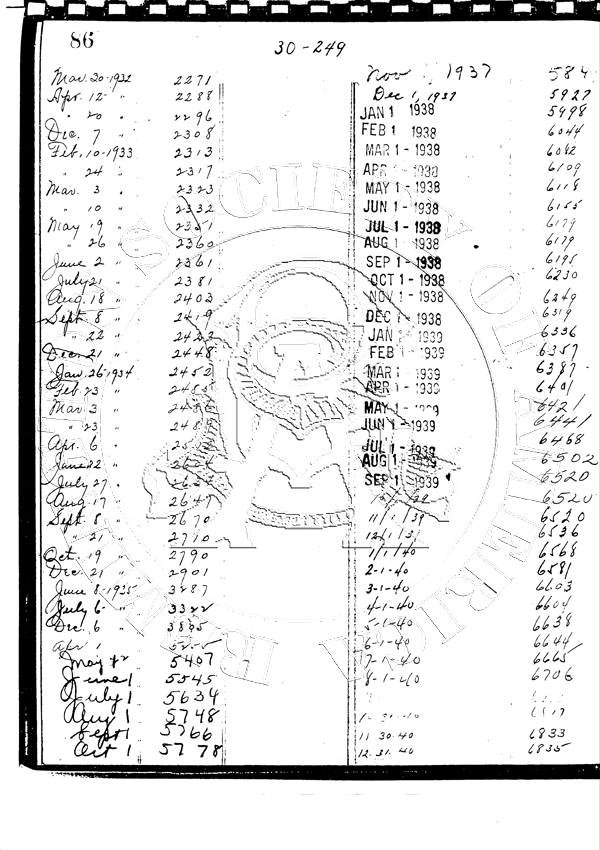 86
30-249
Mar. 20-1932 2271
Apr. 12- " 2288
" 20 " 2296
Dec. 7 " 2308
Feb. 10-1933 2313
" 24 " 2317
Mar. 3 " 2323
" 10 " 2332
May 19 " 2351
" 26 " 2360
June 2 " 2361
July 21 " 2381
Aug. 18 " 2403
Sept. 8 " 2419
" 22 " 2422
Dec. 21 " 2448
Jan. 26-1934 2452
Feb. 23 "
Mar. 3 "
" 23 "
Apr. 6
June 22 "
July 27
Aug. 17
Sept. 8 " 2670
" 21 " 2710
Oct. 19 " 2790
Dec. 21 " 2901
June 8-1935 3287
July 6- " 3322
Dec. 6 "
Apr. 1
May 5407
June 1 5545
July 1 5634
Aug 1 5748
Sept 1 5766
Oct 1 5778
Nov 1937 584
Dec 1, 1937 5927
JAN 1 1938 5998
FEB 1 1938 6044
MAR 1 - 1938 6082
APR 1938 6109
MAY 1 - 1938 6118
JUN 1 - 1938 6155
JUL 1 - 1938 6179
AUG 1 - 1938 6179
SEP 1 - 1938 6195
OCT 1 - 1938 6230
NOV 1 - 1938 6249
DEC 1 - 1938 6319
JAN 1939 6336
FEB 1 1939 6357
MAR 1 1939 6387
APR 1 - 1939 6401
MAY 1 - 1939 6421
JUN 1 - 1939 6441
6468
JUL 1 - 1939 6502
AUG 1 - 1939 6520
SEP 1 - 1939
6520
11/1/39 6520
12/1/3 6536
1/1/40 6568
2-1-40 6581
3-1-40 6603
4-1-40 6604
5-1-40 6638
6-1-40 6644
7-1-40 6665
8-1-40 6706
11 30-40 6833
12.31.40 6835
NUMISMATIC SOCIETY OF AMERICA